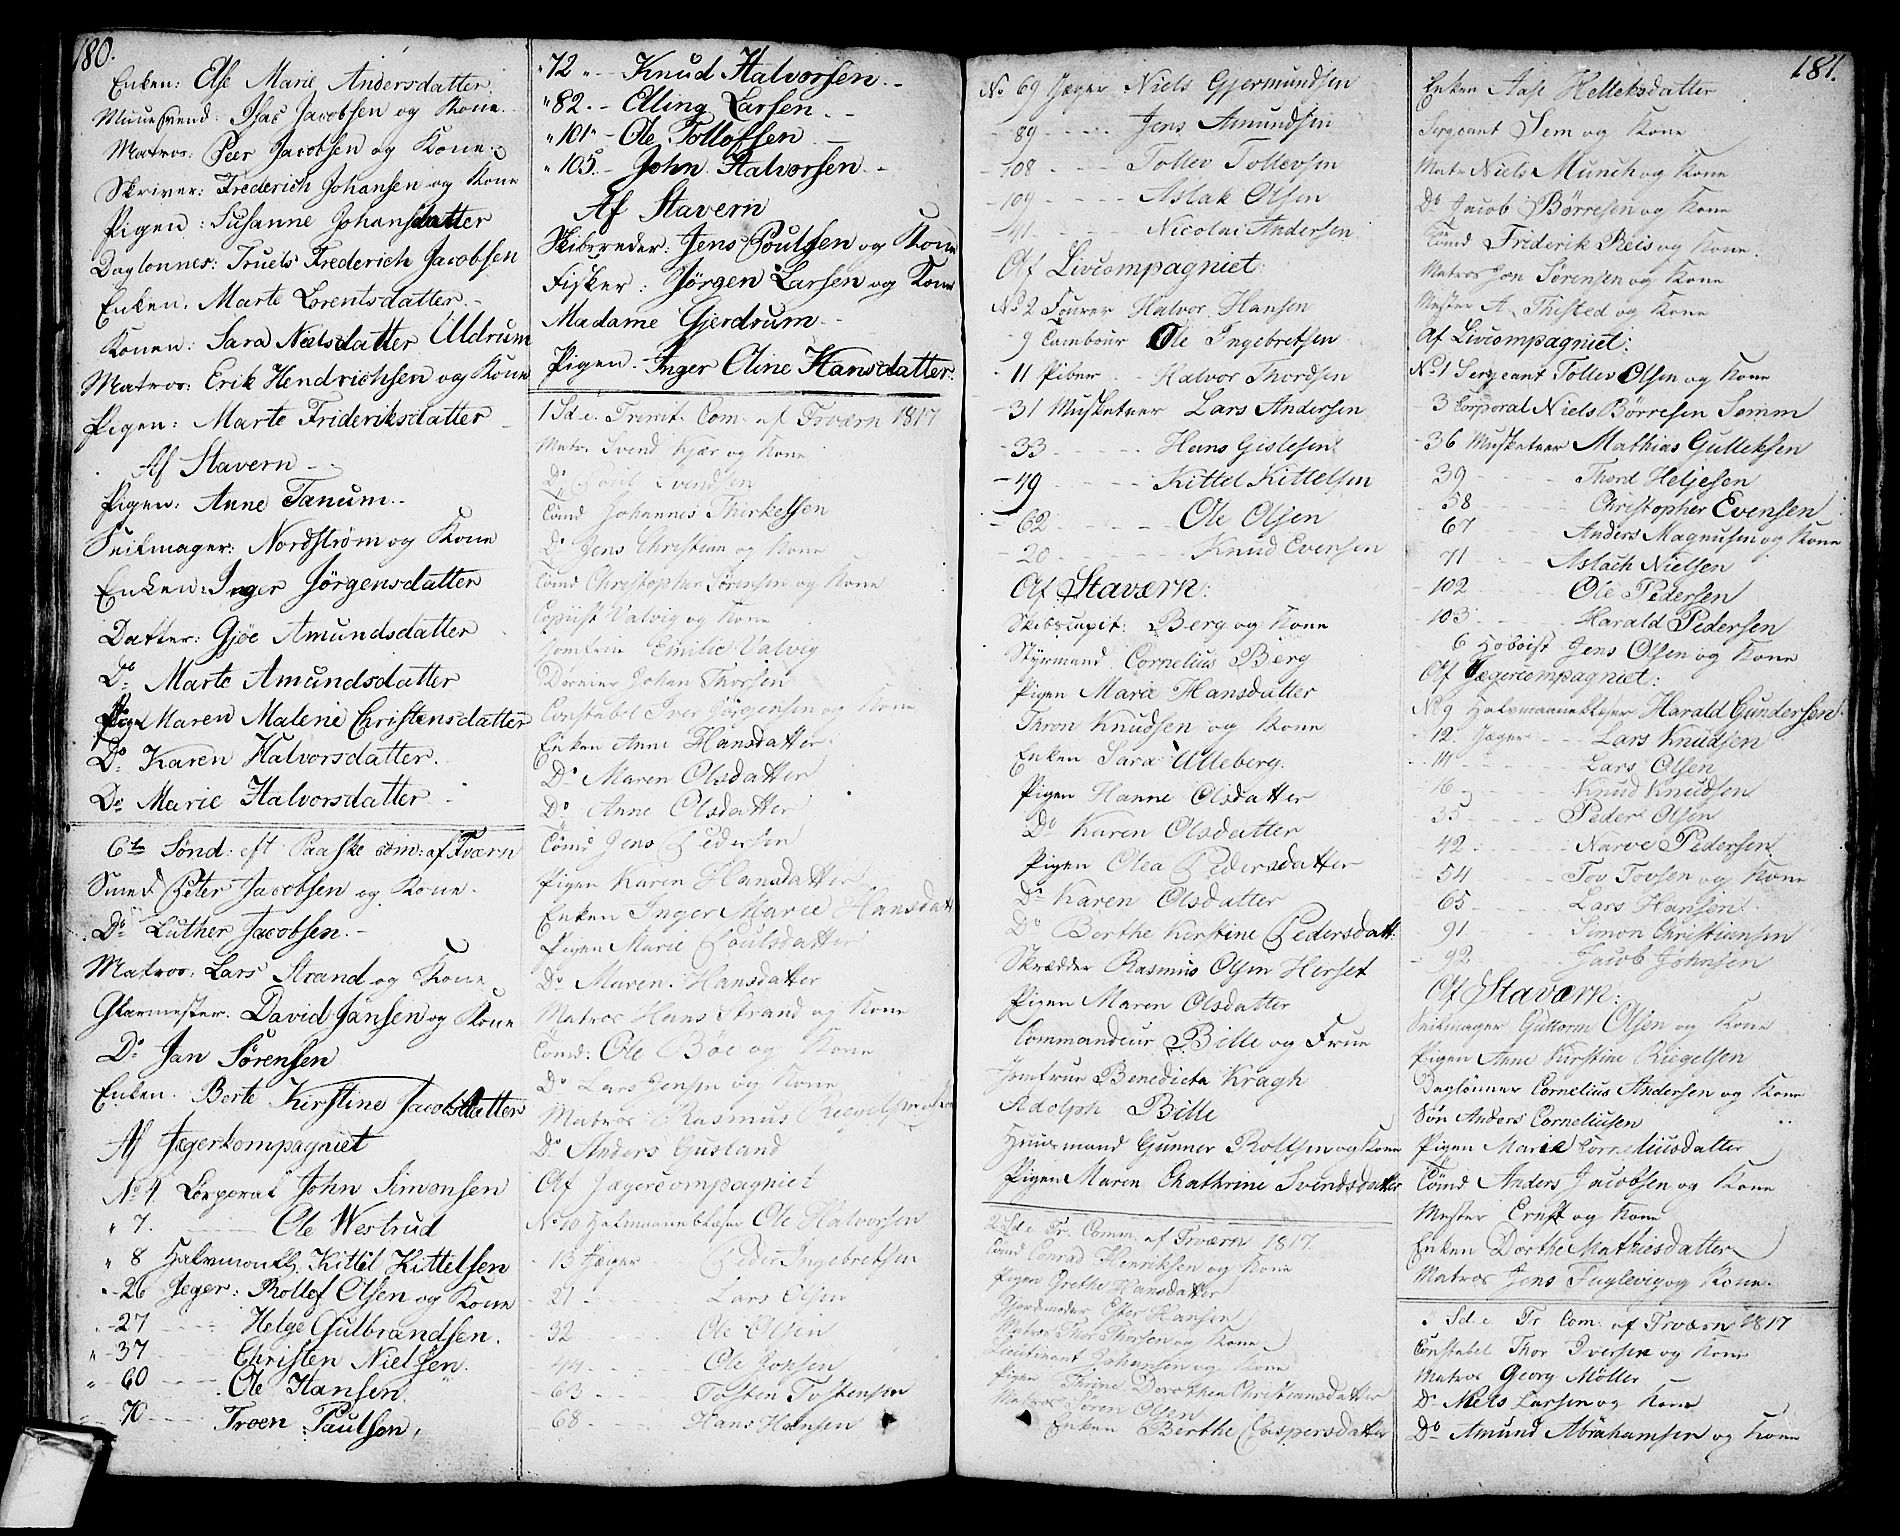 180.
Enken: Else Marie Andersdatter.
Muursvend: Isac Jacobsen og Kone.
Matros: Peer Jacobsen og Kone.
Skriver: Frederich Johansen og Kone
Pigen: Susanne Johansdatter
Daglönnes: Truels Frederich Jacobsen
Enken. Marte Lorentsdatter.
Konen: Sara Nielsdatter Uldrum
Matros: Erik Hendrichsen og Kone
Pigen: Marte Frideriksdatter
Af Stavern
Pigen: Anne Tanum.
Seilmager: Nordstrøm og Kone
Enken: Inger Jörgensdatter
Datter: Gjöe Amundsdatter
Do Marte Amundsdatter
Pige Maren Malene Christensdatter
Do Karen Halvorsdatter.
Do Marie Halvorsdatter
6te Sønd: eft Paaske com: af Fværn
Smed Peter Jacobsen og Kone.
Do Luther Jacobsen.
Matros: Lars Strand og Kone
Glarmester. David Jansen og Kone
Do Jan Sörensen
Enken. Berte Kirstine Jacobsdatter
Af Jegerkompagniet
No 4 Corporal John Simonsen
" 7. Ole Westrud
" 8 Kittil Kittelsen
" 26 Jeger: Rollef Olsen og Kone
" 27 Helge Gulbrandsen.
" 37 Christen Nielsen.
" 60 Ole Hansen.
70 Troen Paulsen,
" 72 " Knud Halvorsen.
" 82. - Elling Larsen
" 101 " - Ole Tollofsen
" 105. - John Halvorsen.
Af Stavern
Skibsreder: Jens Poulsen og Kone
Fisker: Jørgen Larsen og Kone
Madame Gjerdrum.
Pigen. Inger Oline Hansdatter.
1 Sd. e. Trinit. Com. af Fværn 1817
Matr. Svend Kjær og Kone
Do Poul Svendsen
Tömd Johannes Thirkelsen
Do Jens Christian og Kone
Tömd Christopher Sørensen og Kone
Copiist Valvig og Kone
Jomfrue Emilie Valvig
Johan Thorsen
Constabel Iver Jørgensen og Kone
Enken Anne Hansdatter
Do Maren Olsdatter
Do Anne Olsdatter
Tömd Jens Pedersen
Pigen Karen Hansdatter
Enken Inger Marie Hansdatt
Pigen Marie Poulsdatter
Do Maren Hansdatter
Matros Hans Strand og Kone
Tömd: Ole Böe og Kone
Do Lars Jensen og Kone
Matros Rasmus Riegelsen
Do Anders Gusland
Af Jagercompagniet
No 10 Halvmaaneblæser Ole Halvorsen
- 13 Jæger Peder Ingebretsen
- 21 Lars Olsen
- 32 Ole Olsen
- 44 Ole Jopsen
- 63 Tosten Tostensen
- 68 Hans Hansen
No 69 Jæger Niels Gjermundsen
- 89 Jens Amundsen
- 108 Tollev Tollevsen
- 109 Aslak Olsen
- 41 Nicolai Andersen
Af Livcompagniet:
No 2 Fourer Halvor Hansen
- 9 Tambour Ole Ingebretsen
- 11 Piber Halvor Thordsen
- 31 Musketeer Lars Andersen
- 33 Hans Gislesen
- 49 Kittel Kittelsen
- 62 Ole Olsen
- 20 Knud Evensen
Af Staværn:
Skibscapit: Berg og Kone
Styrmand Cornelius Berg
Pigen Marie Hansdatter
Thron Knudsen og Kone
Enken Sara Ulleberg.
Pigen Hanne Olsdatter
Do Karen Olsdatter
Pigen Olea Pedersdatter
Do Karen Olsdatter
Do Berthe Kerstine Pedersdatt.
Skrædder Rasmus Olsen Herset
Pigen Maren Olsdatter
Commandeur Bille og Frue
Jomfrue Benedicta Kragh
Adolph Bille
Huusmand Gunner Rolfsen og Kone
Pigen Maren Chathrine Svendsdatter
2 Sd. e. Tr. Comm. af Fværn 1817.
Tömd Conrad Henriksen og Kone
Pigen Grethe Hansdatter
Gjordemoder Ester Hansen
Matros Thor Thorsen og Kone
Lieutinant Johansen og Kone
Pigen Thrine Dorothea Christiansdatter
Matros Sören Olsen
Enken Berthe Caspersdatter
181.
Enken Aase Helleksdatter
Sergeant Sem og Kone
Matr Niels Munch og Kone
Do Jacob Børresen og Kone
Tömd Friderik Reis og Kone.
Matros Jon Sörensen og Kone
Mester A. Thisted og Kone
Af Livcompagniet:
No 1 Sergeant Tollev Olsen og Kone
- 3 Corporal Niels Börresen Semm
- 36 Musketeer Mathias Gulleksen
39 Thord Heljesen
- 58 Christopher Evensen
67 Anders Magnusen og Kone
71 Aslach Nielsen
- 102 Ole Pedersen
- 103 Harald Pedersen
6 Hoboist Jens Olsen og Kone
Af Jægercompagniet:
No 9 Halvmaaneblæser Harald Gundersen
- 12 Jæger Lars Knudsen
- 14 Lars Olsen
- 16 Knud Knudsen
- 35 Peder Olsen
- 42 Narve Pedersen
- 54 Tov Tovsen og Kone
65 Lars Hansen
- 91 Simon Christiansen
- 92 Jacob Johnsen
Af Staværn:
Seilmager Guttorm Olsen og Kone
Pigen Anne Kirstine Riegelsen
Daglönner Cornelius Andersen og Kone
Sön Anders Corneliusen
Pigen Marie Corneliusdatter
Tömd Anders Jacobsen og Kone
Mester Ernst og Kone
Enken Dorthe Mathiesdatter
Matros Jens Fuglevig og Kone.
Sd. e Tr Com: af Fværn 1817
Constabel Thor Iversen og Kone
Matros Georg Möller
Do Niels Larsen og Kone
Do Amund Abrahamsen og Kone